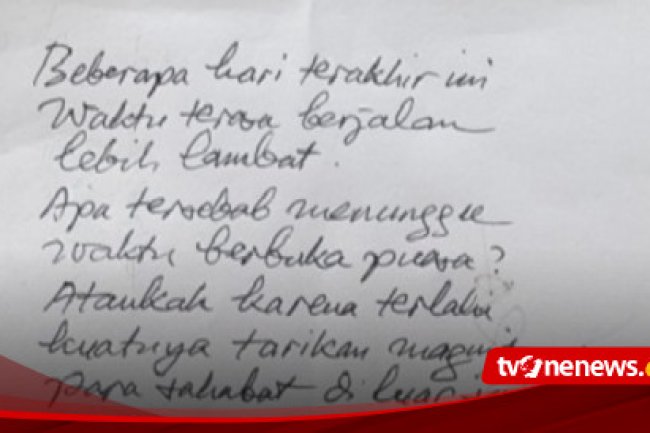 Beberapa hari terakhir ini
Waktu terasa berjalan
lebih lambat.
Apa tersebab menunggu
waktu berbuka puasa?
Ataukah karena terlalu
kuatnya tarikan
para sahabat di luar
tvOnenews.